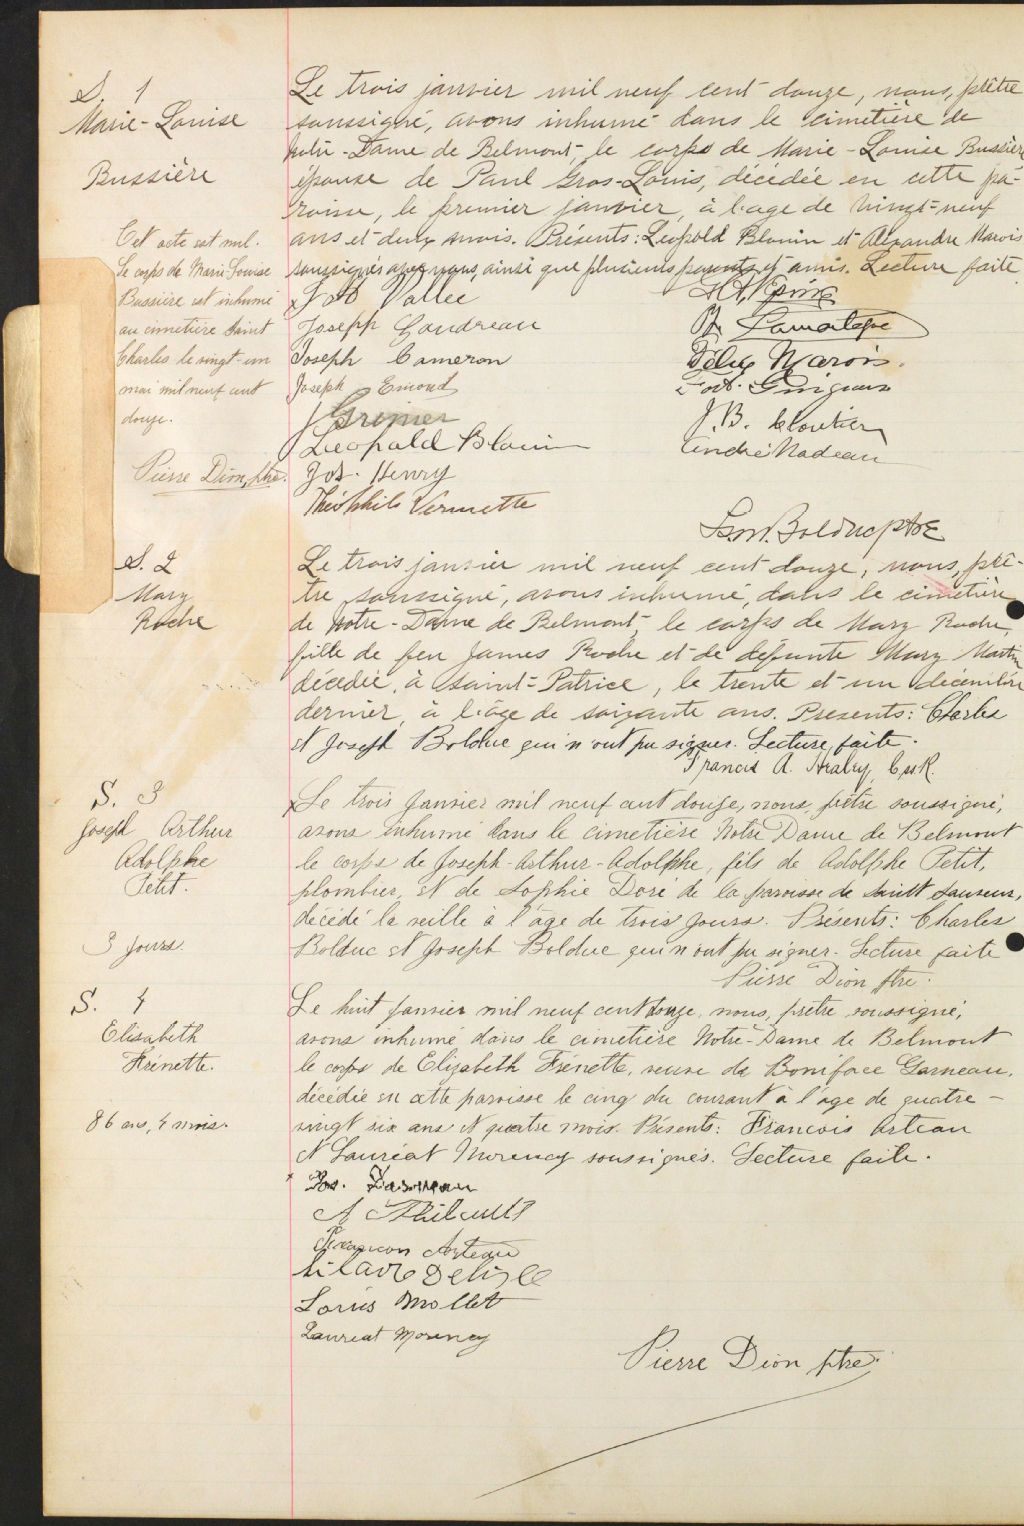 S. 1
Marie-Louise
Bussière
Cet acte est nul.
Le corps de Marie Louise
Bussière est inhumé
au cimetière Saint
Charles le vingt-un
mai mil neuf cent
douze.
Pierre Dion, ptre.
Le trois janvier mil neuf cent douze, nous, prêtre
soussigné, avons inhumé dans le cimetière de
Notre-Dame de Belmont, le corps de Marie-Louise Bussière
épouse de Paul Gros-Louis, décédée en cette pa-
roisse, le premier janvier, à l'age de vingt-neuf
ans et deux mois. Présents: Léopold Blouin et Alexandre Marois
soussignés avec nous, ainsi que plusieurs parents et amis. Lecture faite
Vallee
Joseph Gaudreau
Joseph Cameron
Joseph Emond
J Grenier
Leopold Blouin
Jos. Henry
Théophile Vermette
Lamontagne
Marois.
J. B. Cloutier
André Nadeau
Bolduc ptre
S. 2
Mary
Roche
Le trois janvier mil neuf cent douze, nous, prê-
tre soussigné, avons inhumé, dans le cimetière
de Notre-Dame de Belmont, le corps de Mary Roche,
fille de feu James Roche et de défunte Mary Martin
décédée, à Saint-Patrice, le trente et un décembre
dernier, à l'âge de soixante ans. Presents: Charles
et Joseph Bolduc qui n'ont pu signer. Lecture faite.
Francis A. Healey, C.ss.R.
S. 3
Joseph Arthur
Adolphe
Petit.
3 jours
Le trois Janvier mil neuf cent douze, nous, prêtre soussigné,
avons inhumé dans le cimetière Notre Dame de Belmont
le corps de Joseph-Arthur-Adolphe, fils de Adolphe Petit,
plombier, et de Sophie Doré de la paroisse de Saint Sauveur,
décédé la veille à l'âge de trois jours. Présents: Charles
Bolduc et Joseph Bolduc qui n'ont pu signer. Lecture faite
Pierre Dion ptre.
S. 4
Elisabeth
Frénette.
86 ans, 4 mois.
Le huit Janvier mil neuf cent douze, nous, prêtre soussigné,
avons inhumé dans le cimetière Notre-Dame de Belmont
le corps de Elizabeth Frénette, veuve de Boniface Garneau,
décédée en cette paroisse le cinq du courant à l'âge de quatre-
vingt six ans et quatre mois. Présents: Francois Arteau
et Lauréat Morency soussignés. Lecture faite.
Jos.
A Thibault
Francois Arteau
hilaire Delisle
Louis Mollet
Laureat Morency
Pierre Dion ptre.